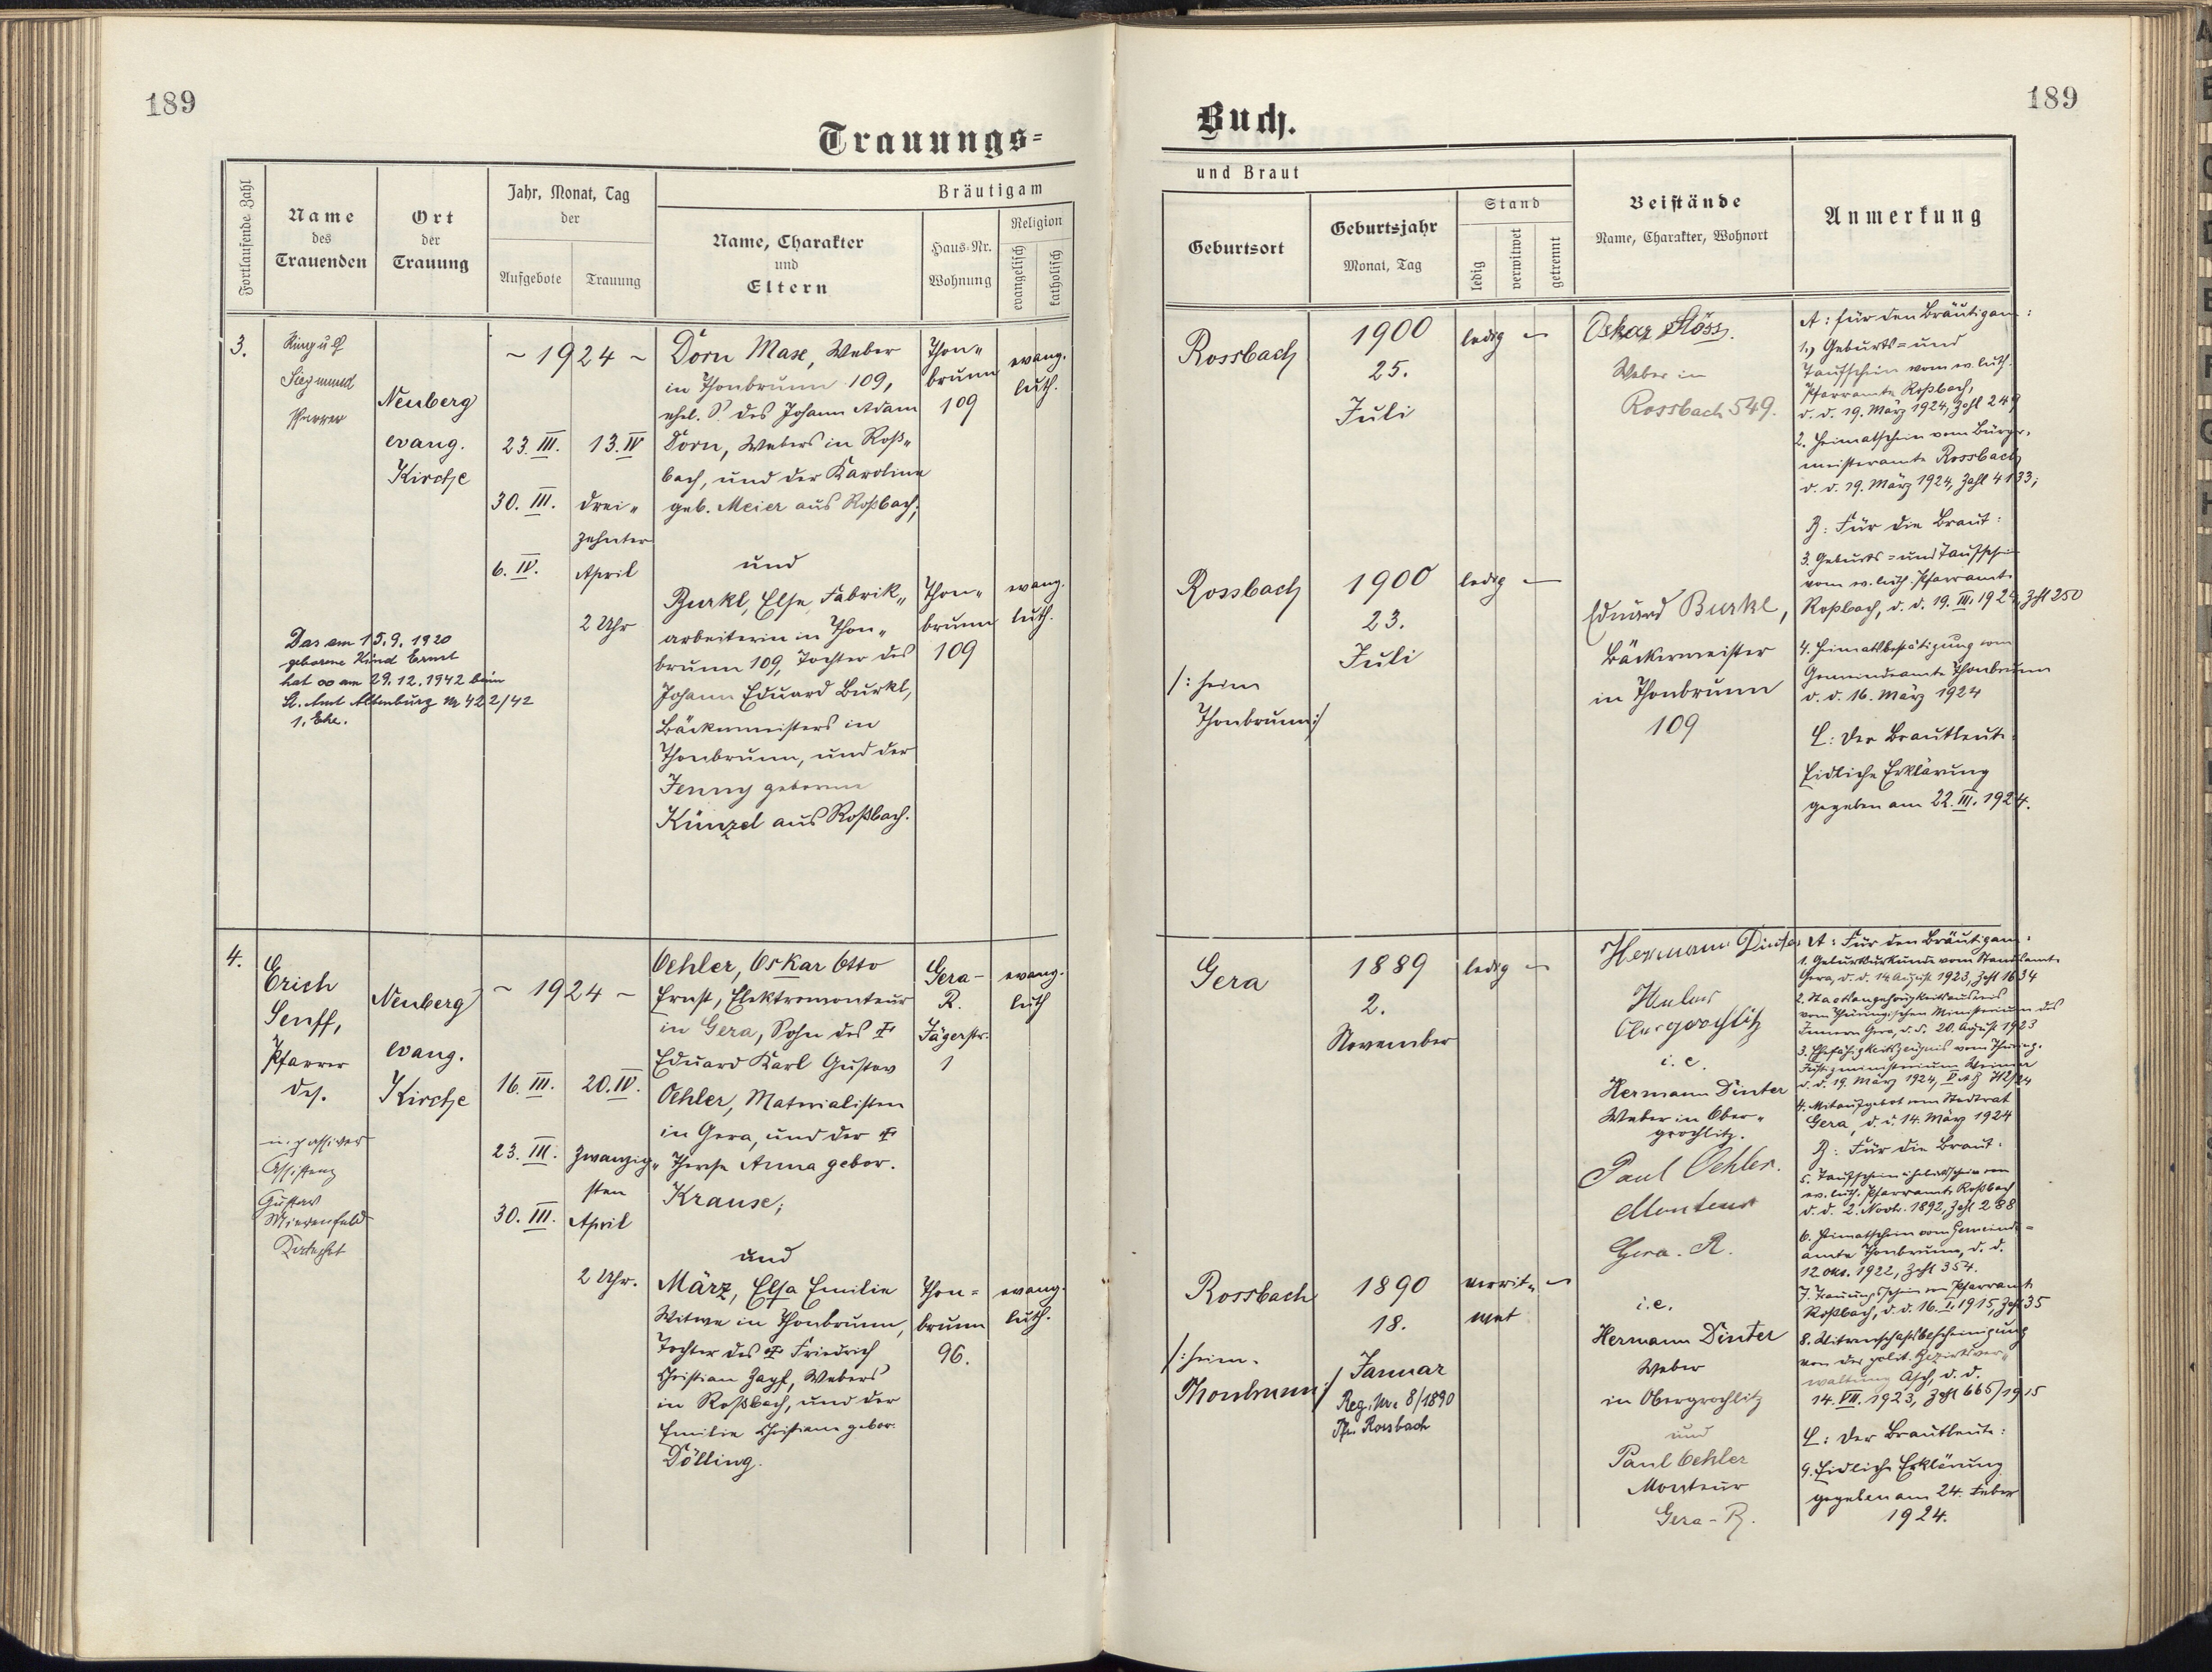 189
Trauungs-
Fortlaufende Zahl
Name
des
Trauenden
Ort
der
Trauung
Jahr, Monat, Tag
der
Aufgebote
Trauung
Bräutigam
Name, Charakter
und
Eltern
Haus-Nr.
Wohnung
Religion
evangelisch
katholisch
3.
Siegmund
Pfarrer
Neuberg
evang.
Kirche
~ 1924 ~
23. III.
30. III.
6. IV.
13. IV
drei-
zehnter
April
2 Uhr
Dorn Max, Weber
in Thonbrunn 109,
ehel. S. des Johann Adam
Dorn, Webers in Roß-
bach, und der Karoline
geb. Meier aus Roßbach;
und
Burkl, Else, Fabrik-
arbeiterin in Thon-
brunn 109, Tochter des
Johann Eduard Burkl,
Bäckermeisters in
Thonbrunn, und der
Jenny geborene
Künzel aus Roßbach.
Thon-
brunn
109
evang.
luth.
Thon-
brunn
109
evang.
luth.
Das am 15.9.1920
geborene Kind Ernst
hat ∞ am 29.12.1942 beim
St. Amt Altenburg Nr 422/42
1. Ehe.
4.
Erich
Senff,
Pfarrer
des.
in passiver
Assistenz
Gustav
Neuberg
evang.
Kirche
~ 1924 ~
16. III.
23. III.
30. III.
20. IV.
zwanzig-
sten
April
2 Uhr.
Oehler, Oskar Otto
Ernst, Elektromonteur
in Gera, Sohn des †
Eduard Karl Gustav
Oehler, Materialisten
in Gera, und der †
Therese Anna gebor.
Krause;
und
März, Elsa Emilie
Witwe in Thonbrunn,
Tochter des † Friedrich
Christian Zapf, Webers
in Roßbach, und der
Emilie Christiane gebor.
Dölling.
Gera-
R.
Jägerstr.
1
evang.
luth
Thon-
brunn
96.
evang.
luth.
189
Buch.
und Braut
Geburtsort
Geburtsjahr
Monat, Tag
Stand
ledig
verwitwet
getrennt
Beistände
Name, Charakter, Wohnort
Anmerkung
Rossbach
1900
25.
Juli
ledig
Oskar Stöss.
Weber in
Rossbach 549.
A: für den Bräutigam:
1., Geburts- und
Taufschein vom ev. luth.
Pfarramte Roßbach,
d. d. 19. März 1924, Zahl 249
2. Heimatschein vom Bürger-
meisteramte Rossbach
d. d. 19. März 1924, Zahl 4133;
B: Für die Braut:
3. Geburts- und Taufschein
vom ev. luth. Pfarramte
Roßbach, d. d. 19. III. 1924, Zahl 250
4. Heimatsbestätigung vom
Gemeindeamte Thonbrunn
d. d. 16. März 1924
C: Der Brautleute:
Eidliche Erklärung
gegeben am 22. III. 1924.
Rossbach
/: heim.
Thonbrunn :/
1900
23.
Juli
ledig
Eduard Burkl,
Bäckermeister
in Thonbrunn
109
Gera
1889
2.
November
ledig
Hermann Dinter
Weber
Obergrochlitz
i. e.
Hermann Dinter
Weber in Ober-
grochlitz.
Paul Oehler.
Monteur
Gera. R.
i. e.
Hermann Dinter
Weber
in Obergrochlitz
und
Paul Oehler
Monteur
Gera-R.
A: Für den Bräutigam:
1. Geburtsurkunde vom Standesamte
Gera, d. d. 14. August 1923, Zahl 1634
2. Staatsangehörigkeitsausweis
vom Thüringischen Ministerium des
Innern Gera, d. d. 20. August 1923
3. Ehefähigkeitszeugnis vom Thüring.
Justizministerium Weimar
d. d. 19. März 1924,
4. Mitaufgebot vom Stadtrat
Gera, d. d. 14. März 1924
B: Für die Braut:
5. Taufschein
ev. luth. Pfarramte Roßbach
d. d. 2. Novbr. 1892, Zahl 288
6. Heimatschein vom Gemeinde-
amte Thonbrunn, d. d.
12. Okt. 1922, Zahl 354.
7. Trauungsschein vom Pfarramt
Roßbach, d. d. 16. I. 1915, Zahl 35
8. Witwenschaftsbescheinigung
von der polit. Bezirksver-
waltung Asch, d. d.
14. VII. 1923, Zahl 665/1915
C: Der Brautleute:
9. Eidliche Erklärung
gegeben am 24. Feber
1924.
Rossbach
/: heim.
Thonbrunn :/
1890
18.
Januar
Reg. Nr. 8/1890
Pfr. Rossbach
verwit-
wet